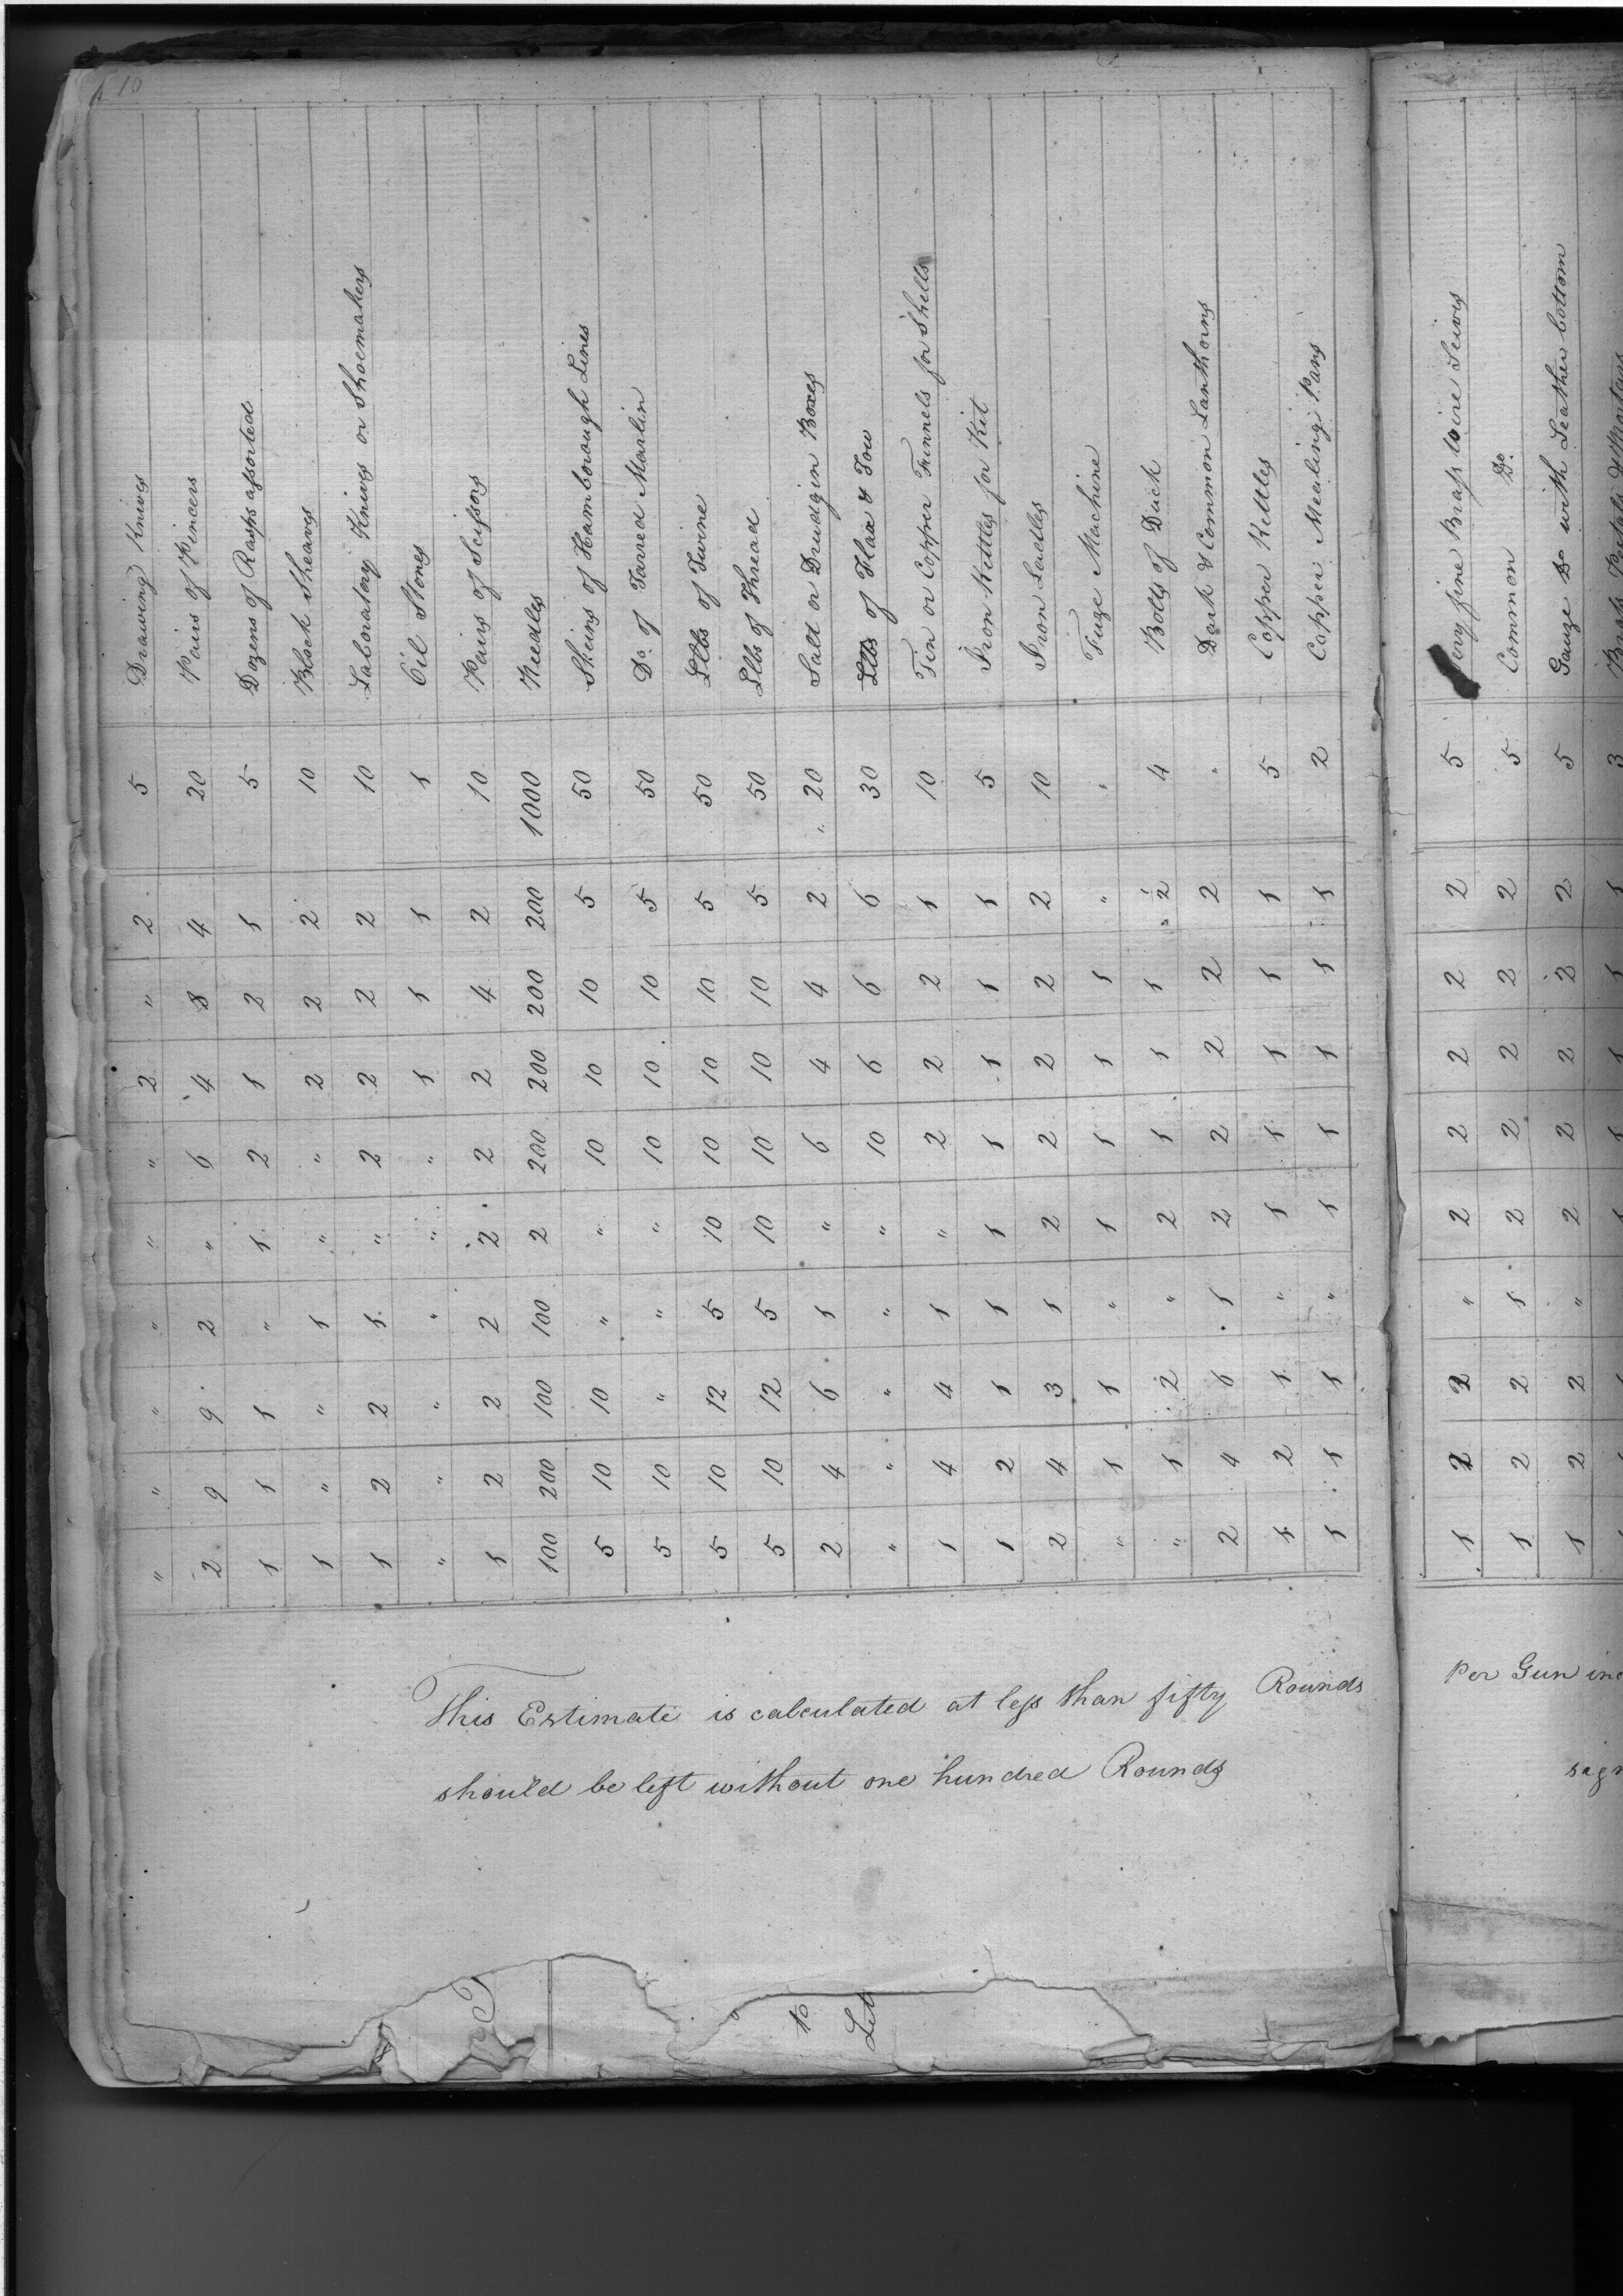 10
Drawing Knives 5 2 " 2 " " " " " "
Pairs of Pincers 20 4 8 4 6 " 2 9 9 2
Dozens of Rasps assorted 5 1 2 1 2 1 " 1 1 1
Block Sheaves 10 2 2 2 " " 1 " " 1
Laboratory Knives or Shoemakers 10 2 2 2 2 " 1 2 2 1
Oil Stones 1 1 1 1 " " " " " "
Pairs of Scissors 10 2 4 2 2 2 2 2 2 1
Needles 1000 200 200 200 200 2 100 100 200 100
Skeins of Hamborough Lines 50 5 10 10 10 " " 10 10 5
Do. of Tarred Marlin 50 5 10 10 10 " " " 10 5
Lbs of Twine 50 5 10 10 10 10 5 12 10 5
Lbs of Thread 50 5 10 10 10 10 5 12 10 5
Salt or Drudgin Boxes " 20 2 4 4 6 " 1 6 4 2
Lbs of Flax & Tow 30 6 6 6 10 " " " " "
Tin or Copper Funnels for Shells 10 1 2 2 2 " 1 4 4 1
Iron Kettles for Kit 5 1 1 1 1 1 1 1 2 1
Iron Ladles 10 2 2 2 2 2 1 3 4 2
Fuze Machine " " 1 1 1 1 " 1 1 "
Bolts of Duck 4 " 2 1 1 1 2 " 2 1 "
Dark & Common Lanthorns " 2 2 2 2 2 1 6 4 2
Copper Kettles 5 1 1 1 1 1 " 1 2 1
Copper Mealing Pans 2 1 1 1 1 1 " 1 1 1
This Estimate is calculated at less than fifty Rounds
should be left without one hundred Rounds
to
Let
ery fine Brass Wire Seives 5 2 2 2 2 2 " 2 2 1
Common Do. 5 2 2 2 2 2 1 2 2 1
Gauze Do with Leather bottom 5 2 2 2 2 2 " 2 2 1
per Gun